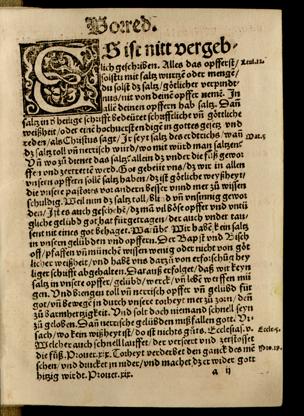 Vorred.
ES ist nitt vergeb-
lich geschriben. Alles das opfferst/
solstu mit saltz wurtzē oder menge/
du solst dz saltz/ götlicher verpindt-
nus/ nit von deinē opffer nemē. In
allē deinen opffern hab saltz. Dañ
saltz in ď heilige schrifft bedeütet
weißheit/ oder eine
reden/ als Christus sagt/ Ir seyt saltz des erdtrichs/ wañ
dz saltz toll vñ nerrisch würd/ wo mit würd man saltzen?
Vñ wo zů dienet das saltz? allein dz under die füß gewor
ffen und zertrettē werd. Got gebeüt uns/ dz wir in allen
unsern opffern sollē saltz haben/ dz ist götliche weyßheyt/
die unser pastores vor andern besser unnd mer zů wissen
schuldig. Weil nun dz saltz toll/
den/ Ist es auch geschehē/ dz mā vil böse opffer und
gliche gelübd got hat fürgetragen/ der auch under tau-
sent nit eines got behaget. Warūb? Wir habē kein saltz
in unsern gelübden und opffern. Der Bapst und Bisch
off/ pfaffen vñ münchē wissen wenig oder nicht von göt
licher weißheit/ und habē uns darzů von
liger schrifft abgehalten. Darauß erfolget/ daß wir keyn
saltz in unsere opffer/ gelübd/ werck/
gen. Vnd brengen toll vñ nerrisch opffer vñ gelübd für
got/ vñ bewegē in durch unsere torheyt mer zů zorn/ den
zů barmhertzigung. Vnd solt doch niemand schnell seyn
zů geloben. Dañ nerrische gelübden mißfallen gott. Vr-
sach/ wo kein wißheyt ist/ do ist nichts gůts. Ecclesias. v.
Welcher auch schnell laufft/ der verseert und zerstosset
die füß. Prouer. xix. Torheyt verderbet den ganck des mē
schen/ und druckt in nider/ und machet dz er wider gott
hitzig wirdt. Prouer. xix.
a ij